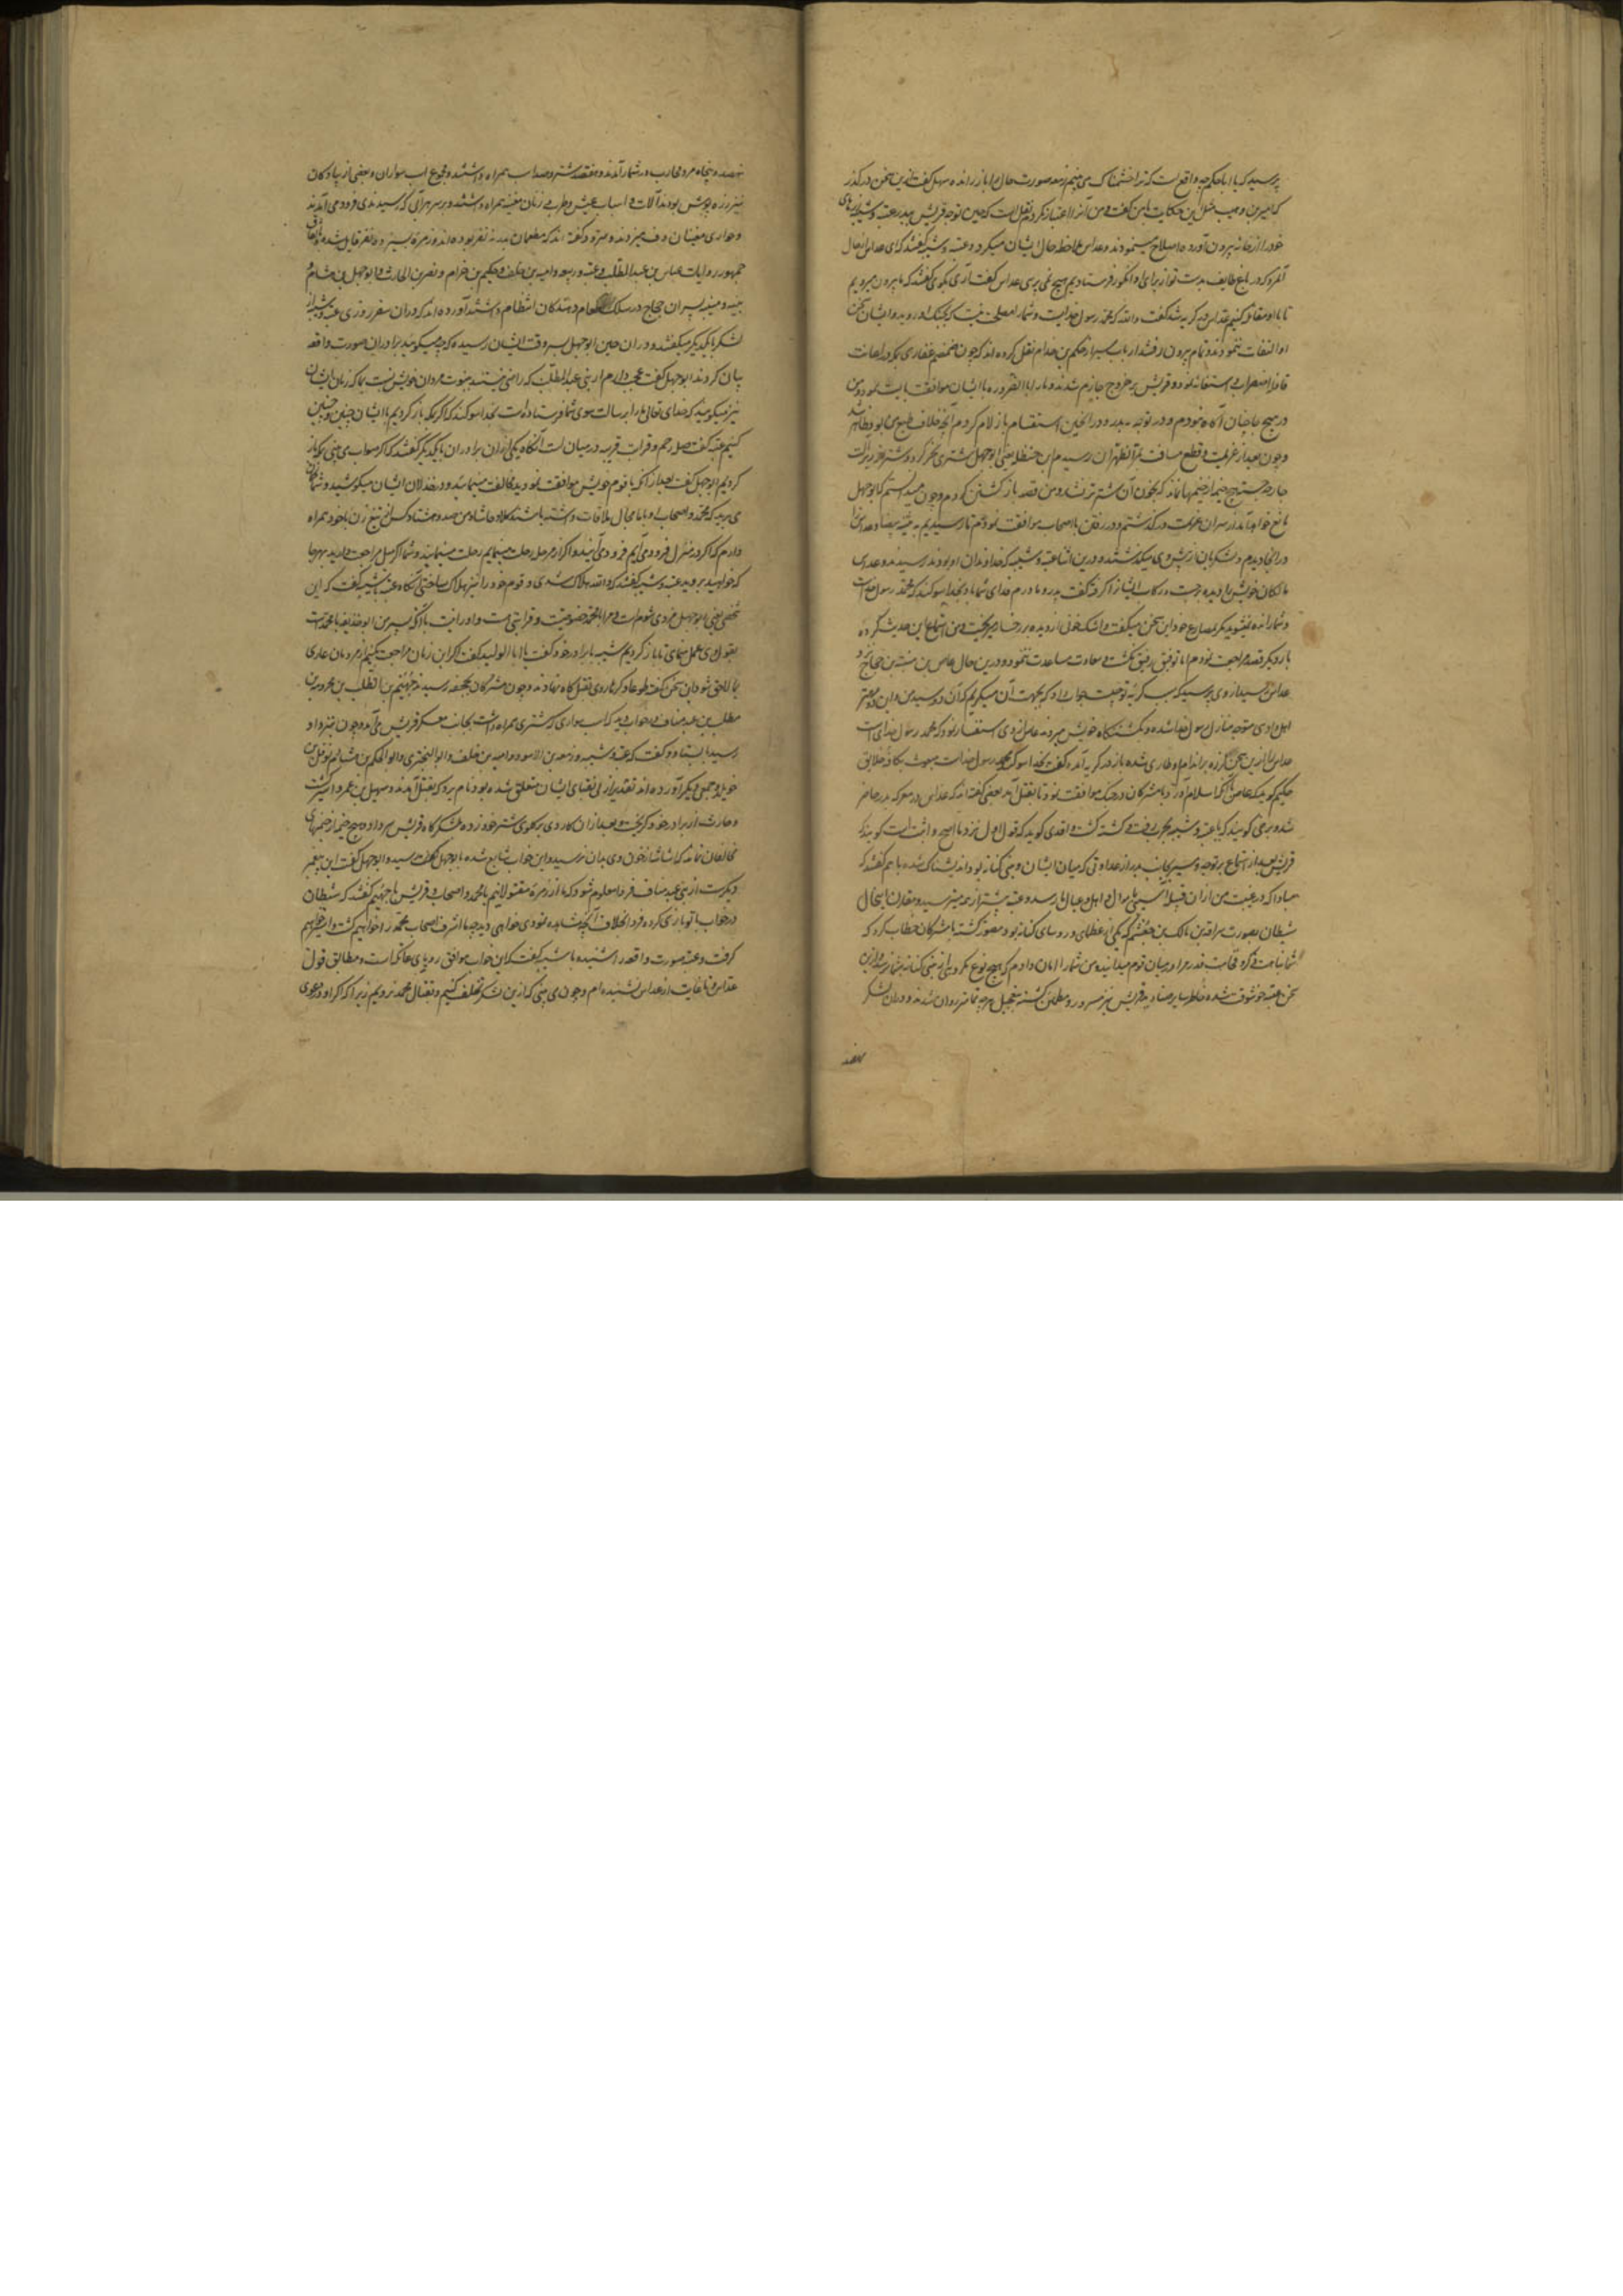 پرسید که یا اباحکیم چه واقع است که ترا خشمناک می بینم زمعه صورت حال را باز راند سهیل گفت ازین سخن درگذر
که عمیر بن وهب مثل این حکایت با من گفت و من آنرا اعتبار نکردم نقل است که حین توجه قریش ببدر عتبه و شیبه زرهای
خود را از خانه بیرون آورده اصلاح مینمودند و عداس ملاحظه حال ایشان میکرد و عتبه و شیبه گفتند که ای عداس حال
آنمرد که در باغ طایف بدست تو از برای او انگور فرستادیم هیچ نمی پرسی عداس گفت آری نکوی گفتند که ما بیرون میرویم
تا با او مقاتله کنیم عداس در گریه شد گفت والله که محمد رسول خداست و شما را مصلحت نیست که بجنگ او روید و ایشان بسخن
او التفات ننمودند و تمام بیرون رفتند ارباب سیر از حکیم بن حزام نقل کرده اند که چون ضمضم غفاری بمکه در اعانت
قافله استغاثه نمود و قریش بر خروج جازم شدند و ما را بالضروره با ایشان موافقت بایست نمود و من
در هیچ جا چنان اکراه نبودم و در توجه به بدر و در آنحین استقسام بازلام کردم آنچه خلاف طبع من بود ظاهر شد
و چون بعد از عزیمت و قطع مسافت بمر الظهران رسیدیم ابن حنظلیه یعنی ابوجهل شتری نحر کرد و شتر
هیچ خیمه از خیمها نماند که بخون آن شتر نشد و من قصد باز گشتن کردم و چون میدانستم که ابوجهل
مانع خواهد آمد از سر آن عزیمت درگذشتم و در رفتن با اصحاب موافقت نمودم تا رسیدیم به ثنیه بیضا و عداس را
در آنجا دیدم و لشکریان از پیش وی میگذشتند و درین اثنا عتبه و شیبه که خداوندان او بودند رسیدند و عداس
مالکان خویش را دیده برجست و رکاب ایشانرا گرفته گفت پدر و مادرم فدای شما باد بخدا سوگند که محمد رسول خداست
و شما را نمی برند مگر بمصارع خود این سخن میگفت و اشک خونی از دیده بر رخسار میریخت و من از استماع این حدیث کرده
بار دیگر قصد مراجعت نمودم اما توفیق رفیق نگشت و سعادت مساعدت ننمود و درین حال عاص بن منبه بن حجاج
عداس رسید از وی پرسید که سبب گریه تو چیست جواب داد که بجهت آن میگریم که این دو سید من و این دو مهتر
اهل وادی متوجه منازل رسول خدا شده و بکشتنگاه خویش میروند عاص از وی استفسار نمود که محمد رسول خدای است
عداس را ازین سخن لرزه بر اندام طاری شده باز در گریه آمد و گفت بخدا سوگند که محمد رسول خداست مبعوث بکافه خلایق
حکیم گوید که عاص اسلام آورد و با مشرکان در جنگ موافقت نمود تا بقتل آمد بعضی گفته اند که عداس در معرکه بدر حاضر
شد و برخی گویند که با عتبه و شیبه بحرب رفت و کشته گشت واقدی گوید که قول اول نزد ما اصح و اثبت است گویند که
قریش بعد از اجماع بر توجه و مسیر بجانب بدر از عداوتی که میان ایشان و بنی کنانه بود اندیشناک شده با هم گفتند که
مبادا که در غیبت من از آن قبیله آسیبی باموال و اهل و عیال ما رسد و عتبه بیشتر از همه میترسید و مقارن اینحال
شیطان بصورت سراقه بن مالک بن جعشم که یکی از عظمای و روسای کنانه بود مصور گشته با مشرکان خطاب کرد که
شما نباهت ذکر و فخامت قدر مرا در میان قوم میدانید و من شما را امان دادم که هیچ نوع مکروهی از بنی کنانه بشما نرسد ازین
سخن عتبه خوشوقت شده خاطر سایر صنادید قریش نیز مسرور و مطمئن گشته بتعجیل هر چه تمامتر روان شدند و در آن لشکر
نهصد و پنجاه مرد محارب در شمار آمدند و هفتصد شتر و صد اسب همراه داشتند و مجموع اسب سواران و بعضی از پیادگان
نیز زره پوش بودند و آلات و اسباب عیش و طرب از زنان مغنیه همراه داشتند و بر سر هر آبی که رسیدندی فرود می آمدند
و جواری مغنیات دف میزدند و گفته اند که مطعمان بدر نه نفر بوده اند و زمره بسیزده نفر قایل شده
جمهور روایات عباس بن عبدالمطلب و عتبه و ربیعه و امیه بن خلف و حکیم بن حزام و نضر بن الحارث و ابوجهل بن هشام
نبیه و منبه پسران حجاج در سلک طعام دهندگان انتظام داشتند آورده اند که در آن سفر روزی عتبه و شیبه از
لشکر با یکدیگر میگفتند و در آن حین ابوجهل بسر وقت ایشان رسیده که چه میگویند برادران صورت واقعه
بیان کردند ابوجهل گفت عجب دارم از بنی عبدالمطلب که راضی نیستند بنبوت مردان خویش نسبت بما که زنان ایشان
نیز میگویند که خدای تعالی ما را برسالت سوی شما فرستاده است بخدا سوگند که اگر بمکه باز گردیم با ایشان چنین و چنین
کنیم عتبه گفت صله رحم و قرابت قریبه در میان است آنگاه یکی از آن برادران با یکدیگر گفتند که اگر صواب می بینی که باز
گردیم ابوجهل گفت بعد از آنکه با قوم خویش موافقت نمودید مخالفت مینمایید و در خذلان ایشان میکوشید و شما گمان
می برید که محمد و اصحاب او با ما مجال ملاقات داشته باشند کلا و حاشا و من صد و هشتاد کس از تیغ زن با خود همراه
دارم که اگر در منزل فرود می آیم فرود می آیند و اگر از مرحله رحلت مینمایم رحلت مینمایند و شما اگر میل مراجعت دارید بهر جا
که خواهید بروید عتبه و شیبه گفتند که والله هلاک شدی و قوم خود را نیز هلاک ساختی آنگاه عتبه با شیبه گفت که این
شخص یعنی ابوجهل مردی شوم است و مرا با محمد خصوصیت و قرابتی است و او را نیست با آنکه پسر من ابوحذیفه با محمدست
بقول من عمل نمای تا باز گردیم شیبه با برادر خود گفت یا ابا الولید گفت اگر این زمان مراجعت کنیم از مردمان عاری
بما لاحق شود ازین سخن گفته طوعا و کرها روی بقتلگاه نهادند و چون مشرکان بجحفه رسیدند جهیم بن الصلت بن مخرمه بن
مطلب بن عبدمناف در خواب دید که اسب سواری که شتری همراه داشت بجانب معسکر قریش می آمد و چون نزد او
رسید بایستاد و گفت که عتبه و شیبه و زمعه بن الاسود و امیه بن خلف و ابوالبختری و ابوالحکم بن هشام و نوفل بن
خویلد و جمعی دیگر آورده اند تقدیر ازلی بفنای ایشان متعلق شده بود نام برد که بقتل آمدند و سهیل بن عمرو اسیر گشت
و حارث از برادر خود گریخت و بعد از آن کاردی بر گلوی شتر خود زده بلشکرگاه قریش سر داد و هیچ خیمه از خیمهای
مخالفان نماند که شاشه از خون وی بدان نرسید و این خواب شایع شده بابوجهل رسید و ابوجهل گفت این پیغمبر
دیگرست از بنی عبدمناف فردا معلوم شود که ما از زمره مقتولانیم یا محمد و اصحاب او قریش با جهیم گفتند که شیطان
در خواب با تو بازی کرده فردا بخلاف آنچه مشاهده نمودی خواهی دید چه ما اشرف اصحاب محمد را خواهیم کشت و اسیر خواهیم
گرفت و عتبه صورت واقعه را شنیده با شیبه گفت که این خواب موافق رویای عاتکه است و مطابق قول
عداس و تا غایت از عداس نشنیده ام و چون می بینی که ازین لشکر تخلف کنیم و بقتال محمد نرویم زیرا که اگر او در دعوی